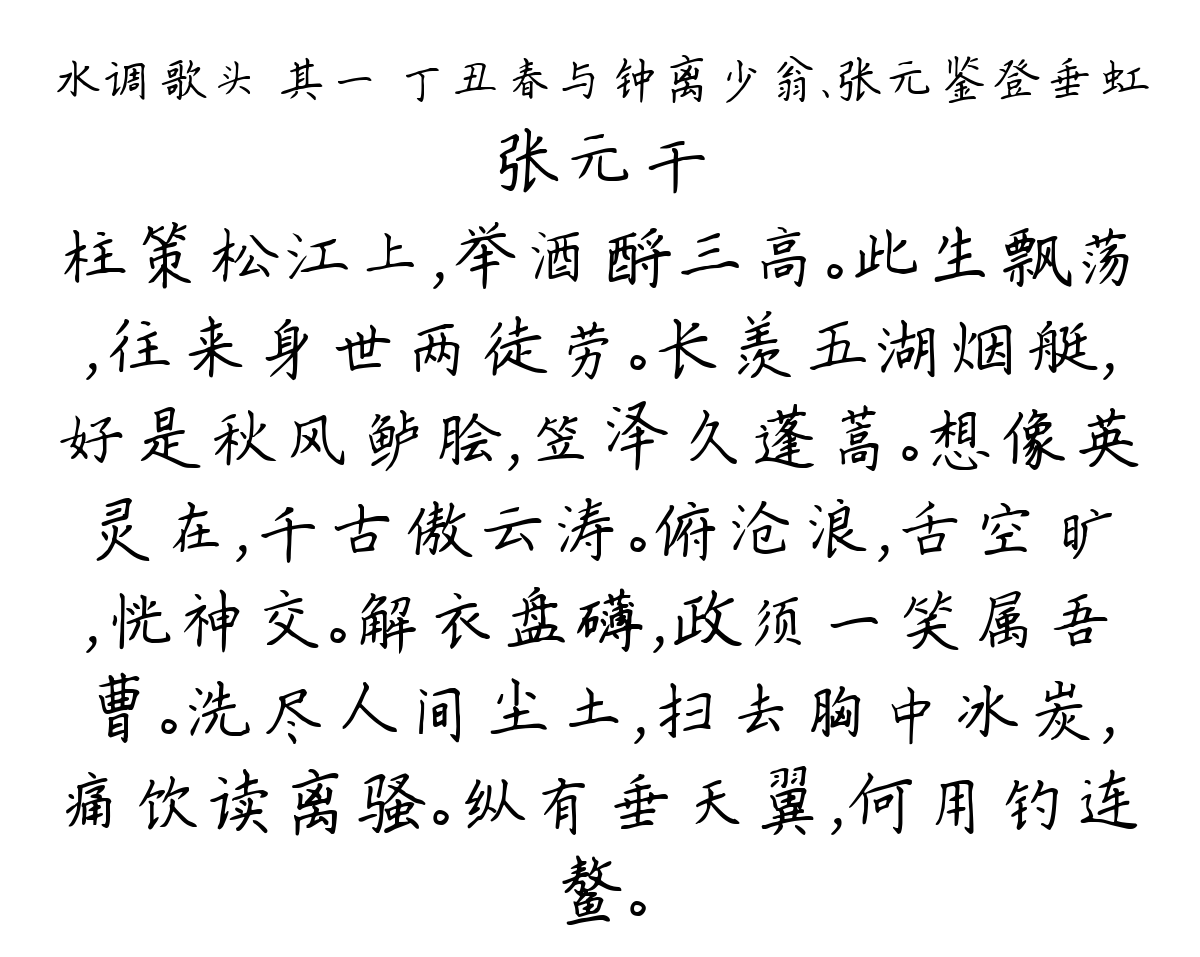 水调歌头 其一 丁丑春与钟离少翁、张元鉴登垂虹
张元干
柱策松江上,举酒酹三高。此生飘荡
,往来身世两徒劳。长羡五湖烟艇,
好是秋风鲈脍,笠泽久蓬蒿。想像英
灵在,千古傲云涛。俯沧浪,舌空旷
,恍神交。解衣盘礴,政须一笑属吾
曹。洗尽人间尘土,扫去胸中冰炭,
痛饮读离骚。纵有垂天翼,何用钓连
鳌。